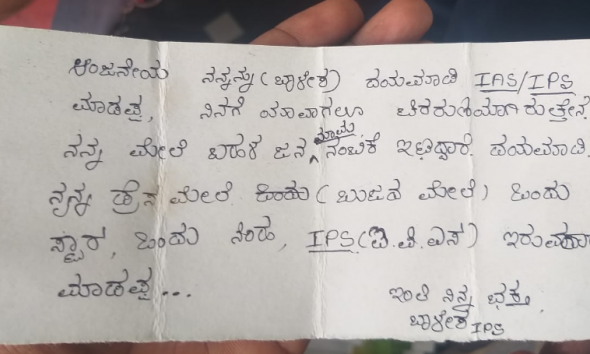 ಆಂಜನೇಯ ನನ್ನನ್ನು (ಬಾಳೇಶ) ದಯಮಾಡಿ IAS/IPS
ಮಾಡಪ್ಪ, ನಿನಗೆ ಯಾವಾಗಲೂ
ನನ್ನ ಮೇಲೆ ಬಹಳ ಜನ ನಂಬಿಕೆ ಇಟ್ಟಿದ್ದಾರೆ. ದಯಮಾಡಿ
ನನ್ನ ಡ್ರೆಸ ಮೇಲೆ ಒಂದು (ಬುಜದ ಮೇಲೆ) ಒಂದು
ಸ್ಟಾರ, ಒಂದು ಸಿಂಹ, IPS (ಐ.ಪಿ.ಎಸ)
ಮಾಡಪ್ಪ...
ಇಂತಿ ನಿನ್ನ ಭಕ್ತ
ಬಾಳೇಶ IPS